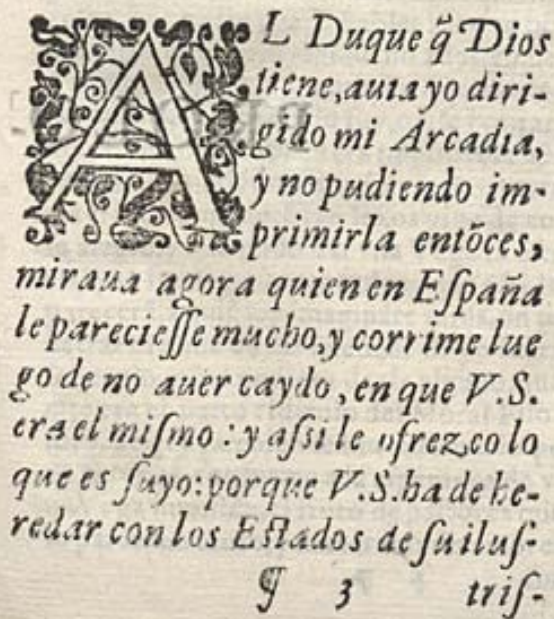 AL Duque q̃ Dios
tiene, auia yo diri-
gido mi Arcadia,
y no pudiendo im-
primirla entõces,
miraua agora quien en Eſpaña
le parecieſſe mucho, y corrime lue
go de no auer caydo, en que V.S.
era el miſmo: y aſsi le ofrezco lo
que es ſuyo: porque V.S. ha de he-
redar con los Eſtados de ſu iluſ-
¶ 3 triſ-